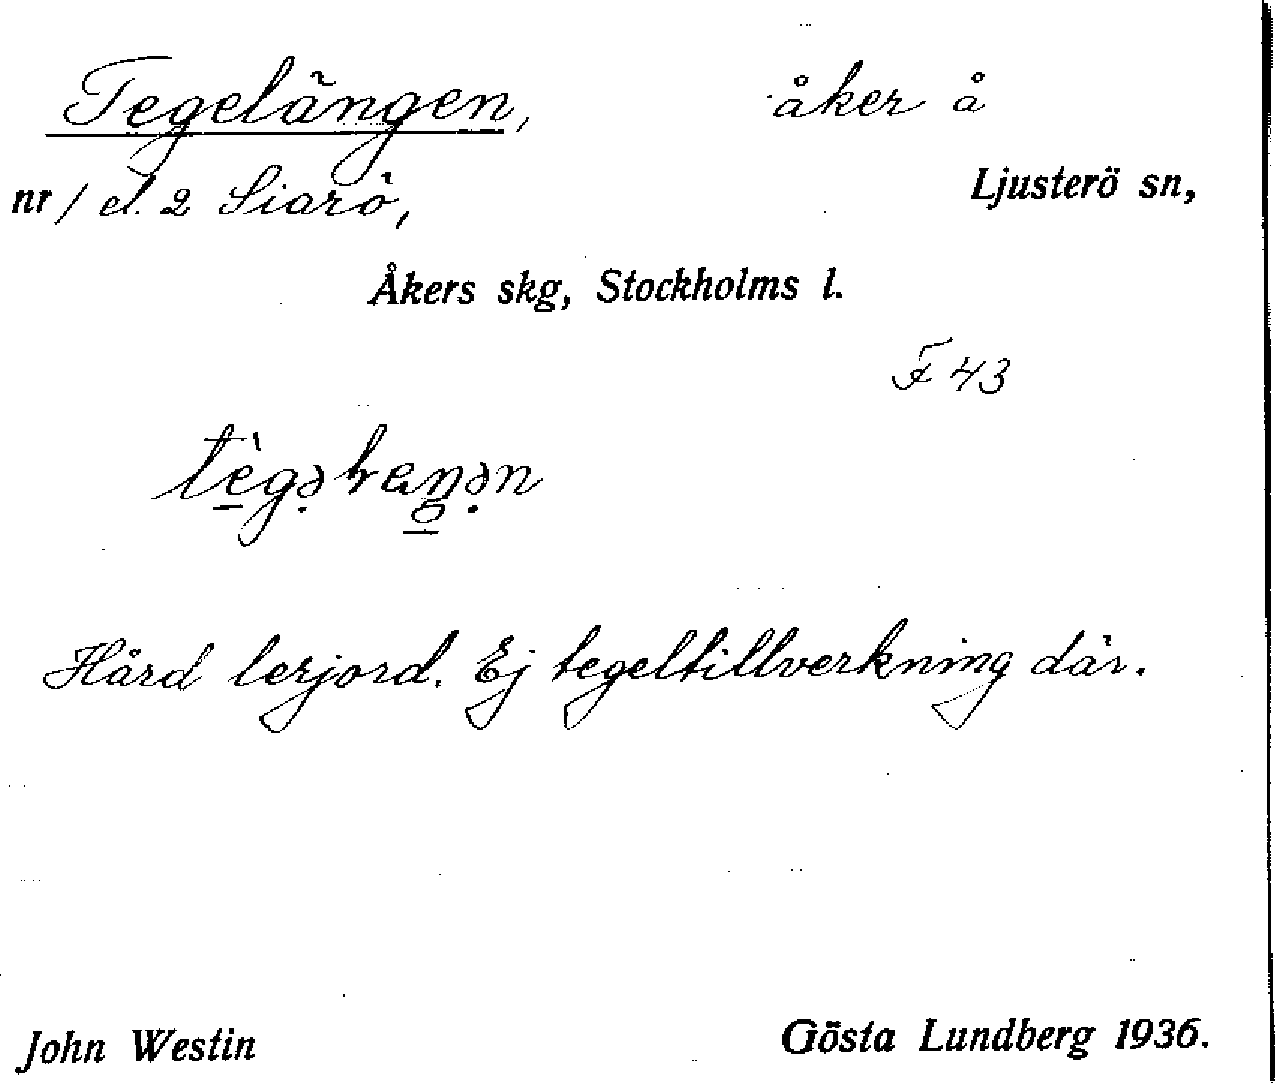 Tegelängen, åker å
nr 1 el. 2 Siarö, Ljusterö sn,
Åkers skg, Stockholms l.
F 43
Hård lerjord. Ej tegeltillverkning där.
John Westin Gösta Lundberg 1936.